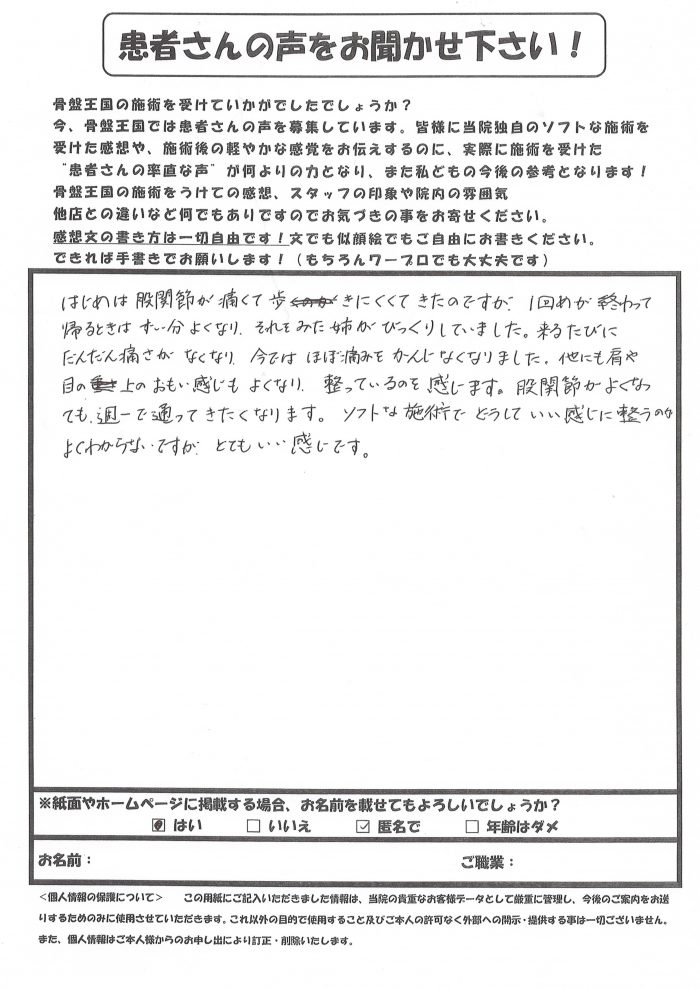 患者さんの声をお聞かせ下さい！
骨盤王国の施術を受けていかがでしたでしょうか？
今、骨盤王国では患者さんの声を募集しています。皆様に当院独自のソフトな施術を
受けた感想や、施術後の軽やかな感覚をお伝えするのに、実際に施術を受けた
“患者さんの率直な声”が何よりの力となり、また私どもの今後の参考となります！
骨盤王国の施術をうけての感想、スタッフの印象や院内の雰囲気
他店との違いなど何でもありですのでお気づきの事をお寄せください。
感想文の書き方は一切自由です！文でも似顔絵でもご自由にお書きください。
できれば手書きでお願いします！（もちろんワープロでも大丈夫です）
はじめは股関節が痛くて歩きにくくてきたのですが、1回めが終わって
帰るときはずい分よくなり、それをみた姉がびっくりしていました。来るたびに
だんだん痛さがなくなり、今ではほぼ痛みをかんじなくなりました。他にも肩や
目の上のおもい感じもよくなり、整っているのを感じます。股関節がよくなっ
ても、週一で通ってきたくなります。ソフトな施術でどうしていい感じに整うのか
よくわからないですが、とてもいい感じです。
※紙面やホームページに掲載する場合、お名前を載せてもよろしいでしょうか？
はい いいえ 匿名で 年齢はダメ
お名前： ご職業：
＜個人情報の保護について＞ この用紙にご記入いただきました情報は、当院の貴重なお客様データとして厳重に管理し、今後のご案内をお送
りするためのみに使用させていただきます。これ以外の目的で使用すること及びご本人の許可なく外部への開示・提供する事は一切ございません。
また、個人情報はご本人様からのお申し出により訂正・削除いたします。